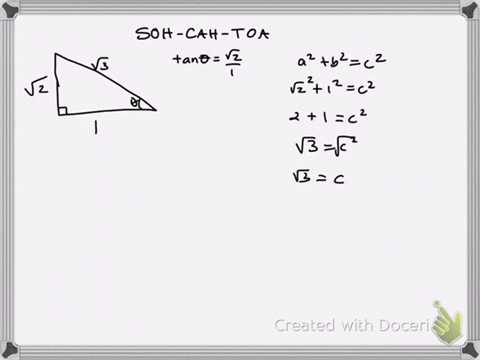 SOH-CAH-TOA
tanθ = √2/1
√3
√2
θ
1
a² + b² = c²
√2² + 1² = c²
2 + 1 = c²
√3 = √c²
√3 = c
Created with Doceri